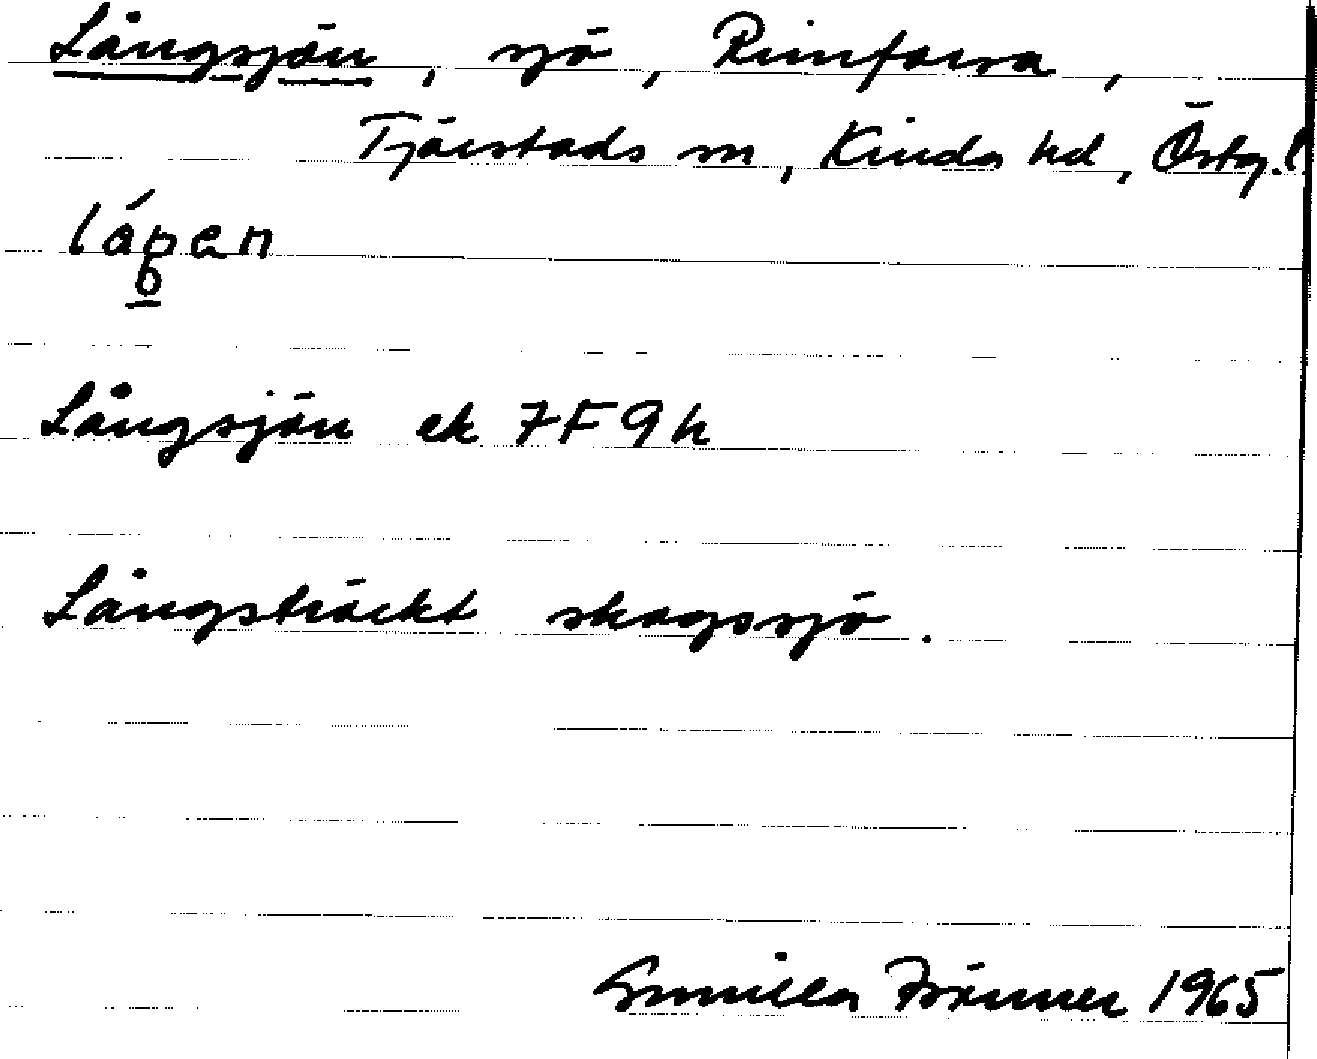 Långsjön, sjö, Rimforsa,
Tjärstads sn, Kinda hd, Östg.
Långsjön ek 7F9h
Långsträckt skogssjö.
Gunilla 1965